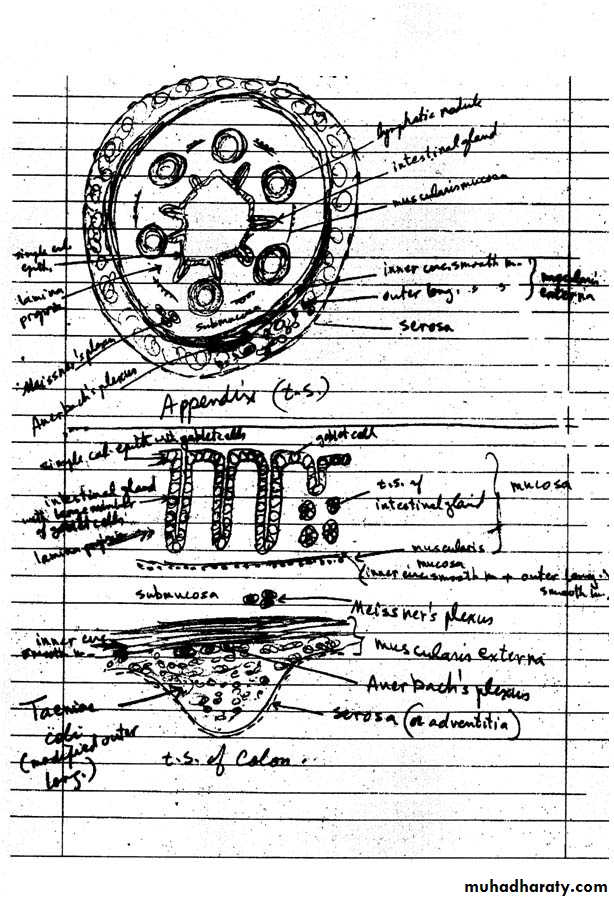 lymphatic nodule
intestinal gland
muscularis mucosa
simple col.
epith.
lamina
propria
inner circ. smooth m.
outer long. " "
muscularis
externa
submucosa
serosa
Meissner's plexus
Auerbach's plexus
Appendix (t.s.)
simple col. epith with goblet cells
goblet cell
intestinal gland
with large number
of goblet cells
lamina propria
t.s. of
intestinal gland
mucosa
muscularis
mucosa
(inner circ. smooth m + outer long.
smooth m.
submucosa
Meissner's plexus
inner circ.
smooth m.
muscularis externa
Auerbach's plexus
Taeniae
coli
(modified outer
long.)
serosa (or adventitia)
t.s. of Colon
muhadharaty.com